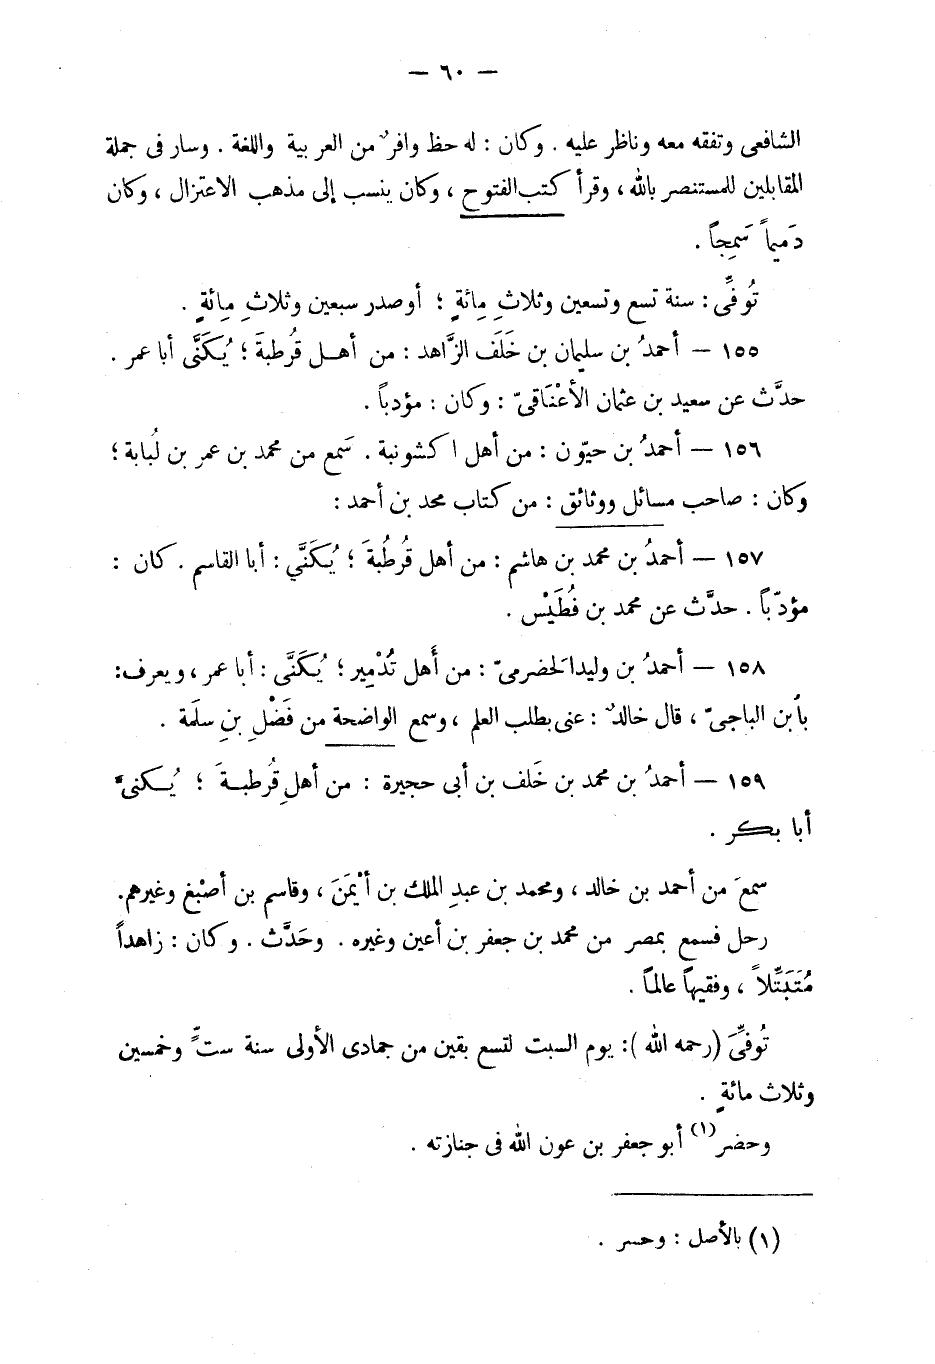 — ٦٠ —
الشافعى وتفقه معه وناظر عليه . وكان : له حظ وافرٌ من العربية واللغة . وسار فى جملة
المقابلين للمستنصر بالله ، وقرأ كتب الفتوح ، وكان ينسب إلى مذهب الاعتزال ، وكان
دَميماً سَمِجاً .
تُوفِّى : سنة تسع وتسعين وثلاثِ مِائةٍ ؛ أو صدر سبعين وثلاثِ مِائةٍ .
١٥٥ — أحمدُ بن سليمان بن خَلَف الزَّاهد : من أهـل قُرطبةَ ؛ يُكَنَّى أبا عمر .
حدَّث عن سعيد بن عثمان الأعْنَاقىّ : وكان : مؤدباً .
١٥٦ — أحمدُ بن حيّون : من أهل اكشونبة . سَمع من محمد بن عمر بن لُبابة ؛
وكان : صاحب مسائل ووثائق : من كتاب محمد بن أحمد :
١٥٧ — أحمدُ بن محمد بن هاشم : من أهل قُرطُبةَ ؛ يُكَنَّي : أبا القاسم . كان :
مؤدّباً . حدَّث عن محمد بن فُطَيْس .
١٥٨ — أحمدُ بن وليد الحَضرمىّ : من أَهل تُدْمِير ؛ يُكَنَّى : أبا عمر ، ويعرف :
بأبن الباجىّ ، قال خالدٌ : عنى بطلب العلم ، وسمع الواضحة من فَضْلِ بنِ سلَمة .
١٥٩ — أحمدُ بن محمد بن خَلف بن أبى حجيرة : من أهلِ قُرطبـةَ ؛ يُـكنىَّ
أبا بكر .
سمعَ من أحمد بن خالد ، ومحمد بن عبدِ الملك بن أيْمَنَ ، وقاسم بن أصْبغ وغيرهم .
رحل فسمع بمصر من محمد بن جعفر بن أعين وغيره . وحَدَّث . وكان : زاهداً
مُتَبَتِّلاً ، وفقيهاً عالماً .
تُوفِّىَ (رحمه الله) : يوم السبت لتسع بقين من جمادى الأولى سنة ستٍّ وخمسين
وثلاث مائةٍ .
وحضر(١) أبو جعفر بن عون الله فى جنازته .
(١) بالأصل : وحسر .